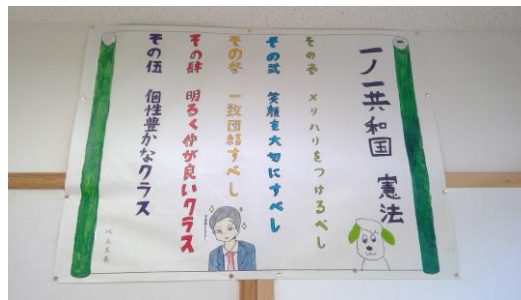 一ノ一共和国 憲法
その壱 メリハリをつけるべし
その弐 笑顔を大切にすべし
その参 一致団結すべし
その肆 明るく仲が良いクラス
その伍 個性豊かなクラス
以上五条